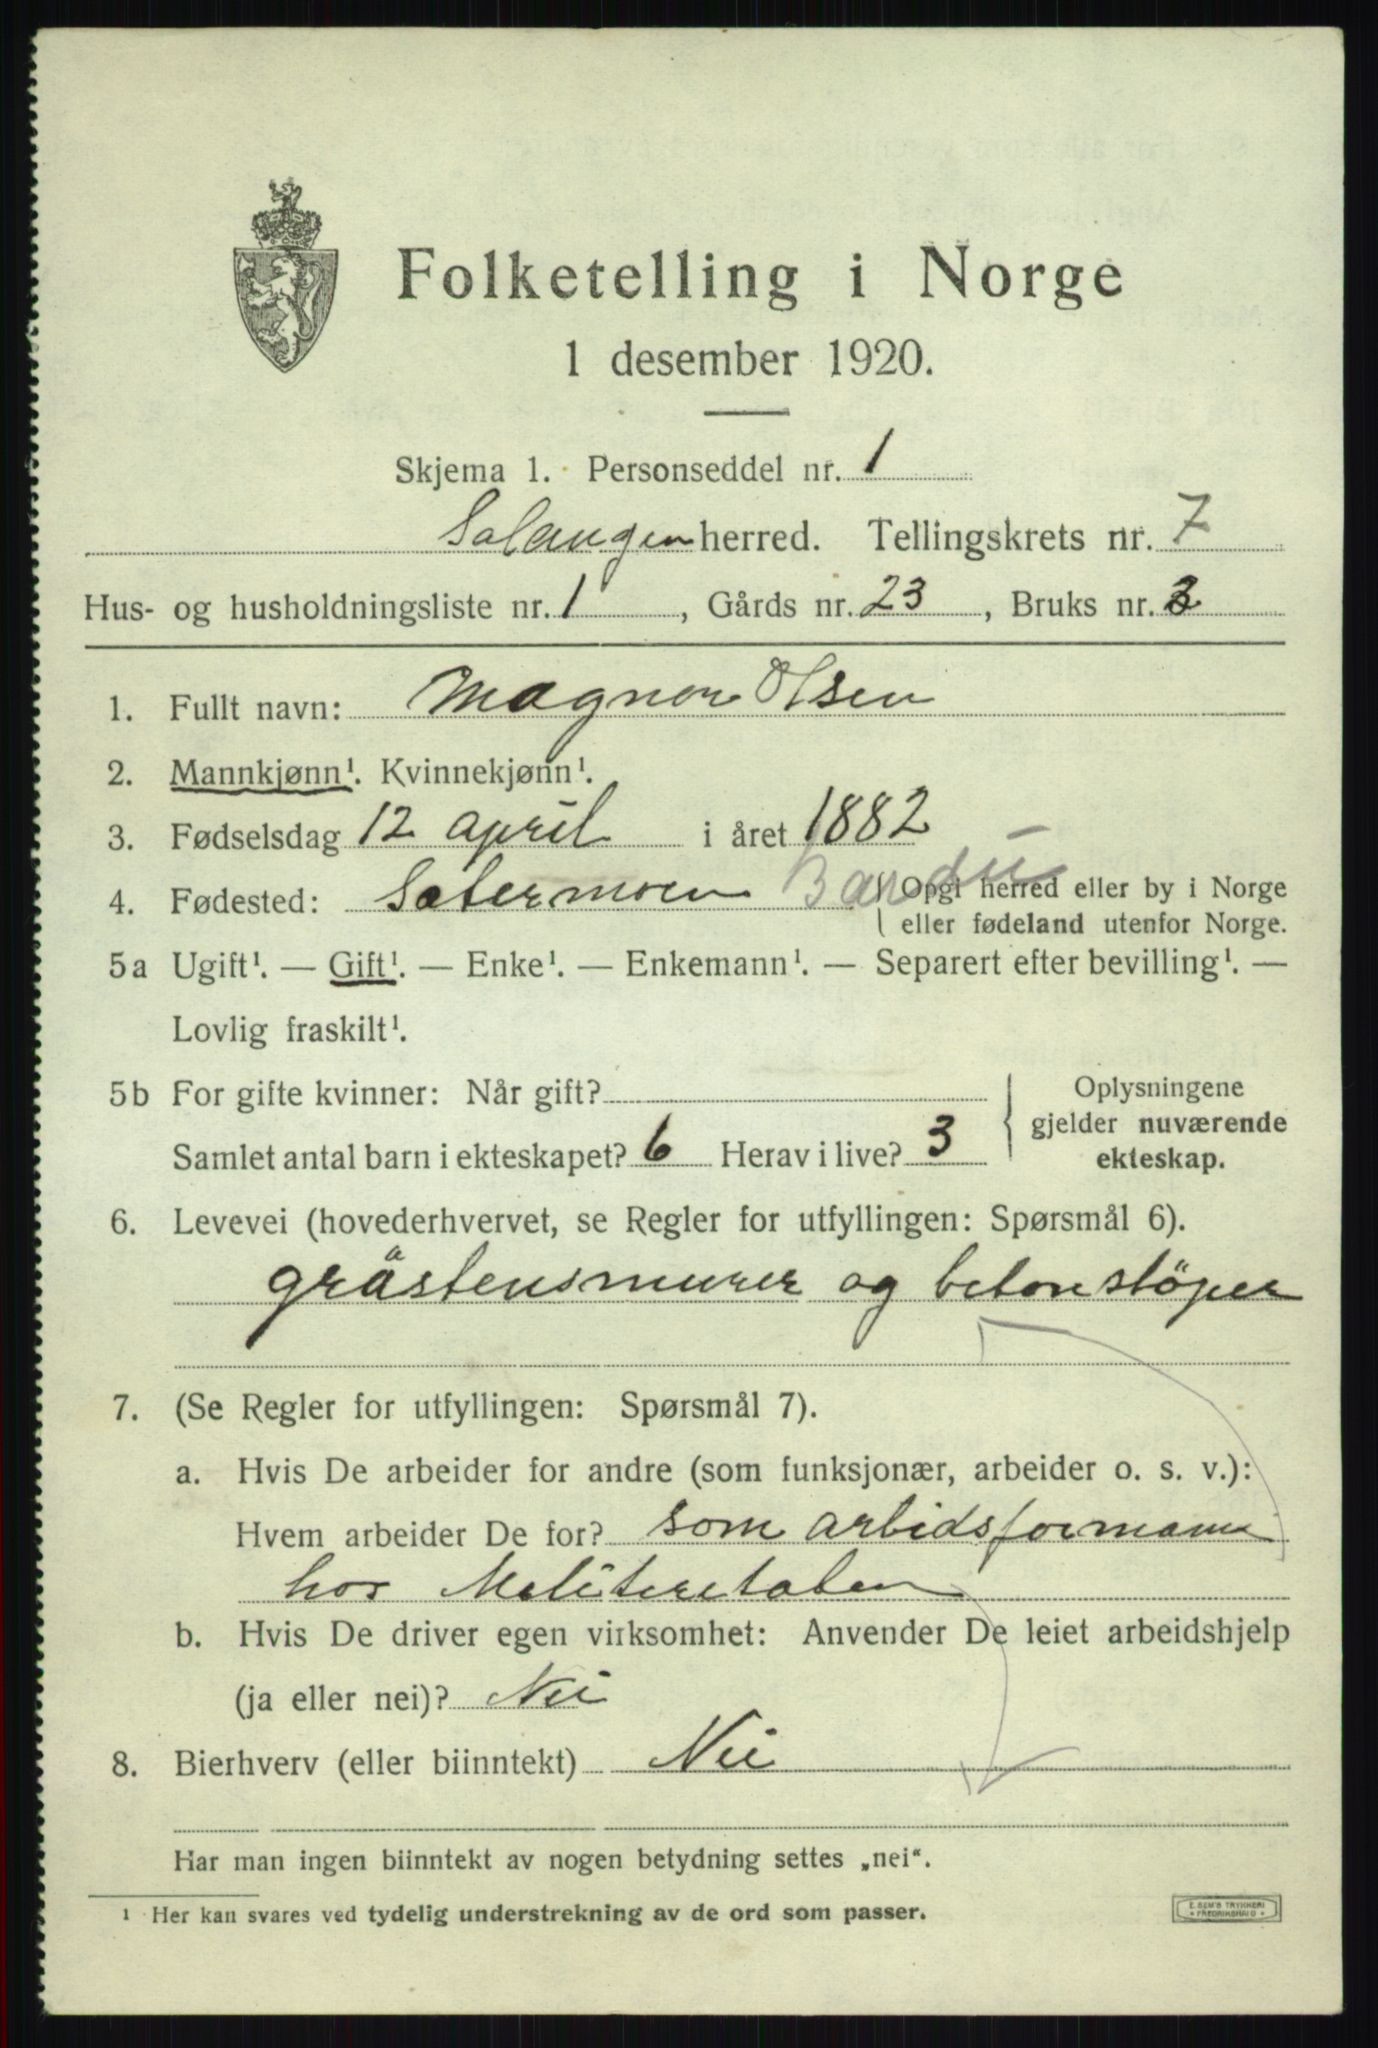 Folketelling i Norge
1 desember 1920.
Skjema 1. Personseddel nr. 1
Salangen herred. Tellingskrets nr. 7
Hus- og husholdningsliste nr. 1, Gårds nr. 23, Bruks nr. 3
1. Fullt navn: Magnor Olsen
2. Mannkjønn¹. Kvinnekjønn¹.
3. Fødselsdag 12 april i året 1882
4. Fødested: Setermoen Bardu { Opgi herred eller by i Norge
eller fødeland utenfor Norge.
5a Ugift¹. — Gift¹. — Enke¹. — Enkemann¹. — Separert efter bevilling¹. —
Lovlig fraskilt¹.
5b For gifte kvinner: Når gift?
Samlet antal barn i ekteskapet? 6 Herav i live? 3 { Oplysningene
gjelder nuværende
ekteskap.
6. Levevei (hovederhvervet, se Regler for utfyllingen: Spørsmål 6).
gråstensmurer og betonstöper
7. (Se Regler for utfyllingen: Spørsmål 7).
a. Hvis De arbeider for andre (som funksjonær, arbeider o. s. v.):
Hvem arbeider De for? som arbidsformann
hos Meliteretaten
b. Hvis De driver egen virksomhet: Anvender De leiet arbeidshjelp
(ja eller nei)? Nei
8. Bierhverv (eller biinntekt) Nei
Har man ingen biinntekt av nogen betydning settes „nei“.
¹ Her kan svares ved tydelig understrekning av de ord som passer.
E. SEM'S TRYKKERI
* FREDRIKSHALD *